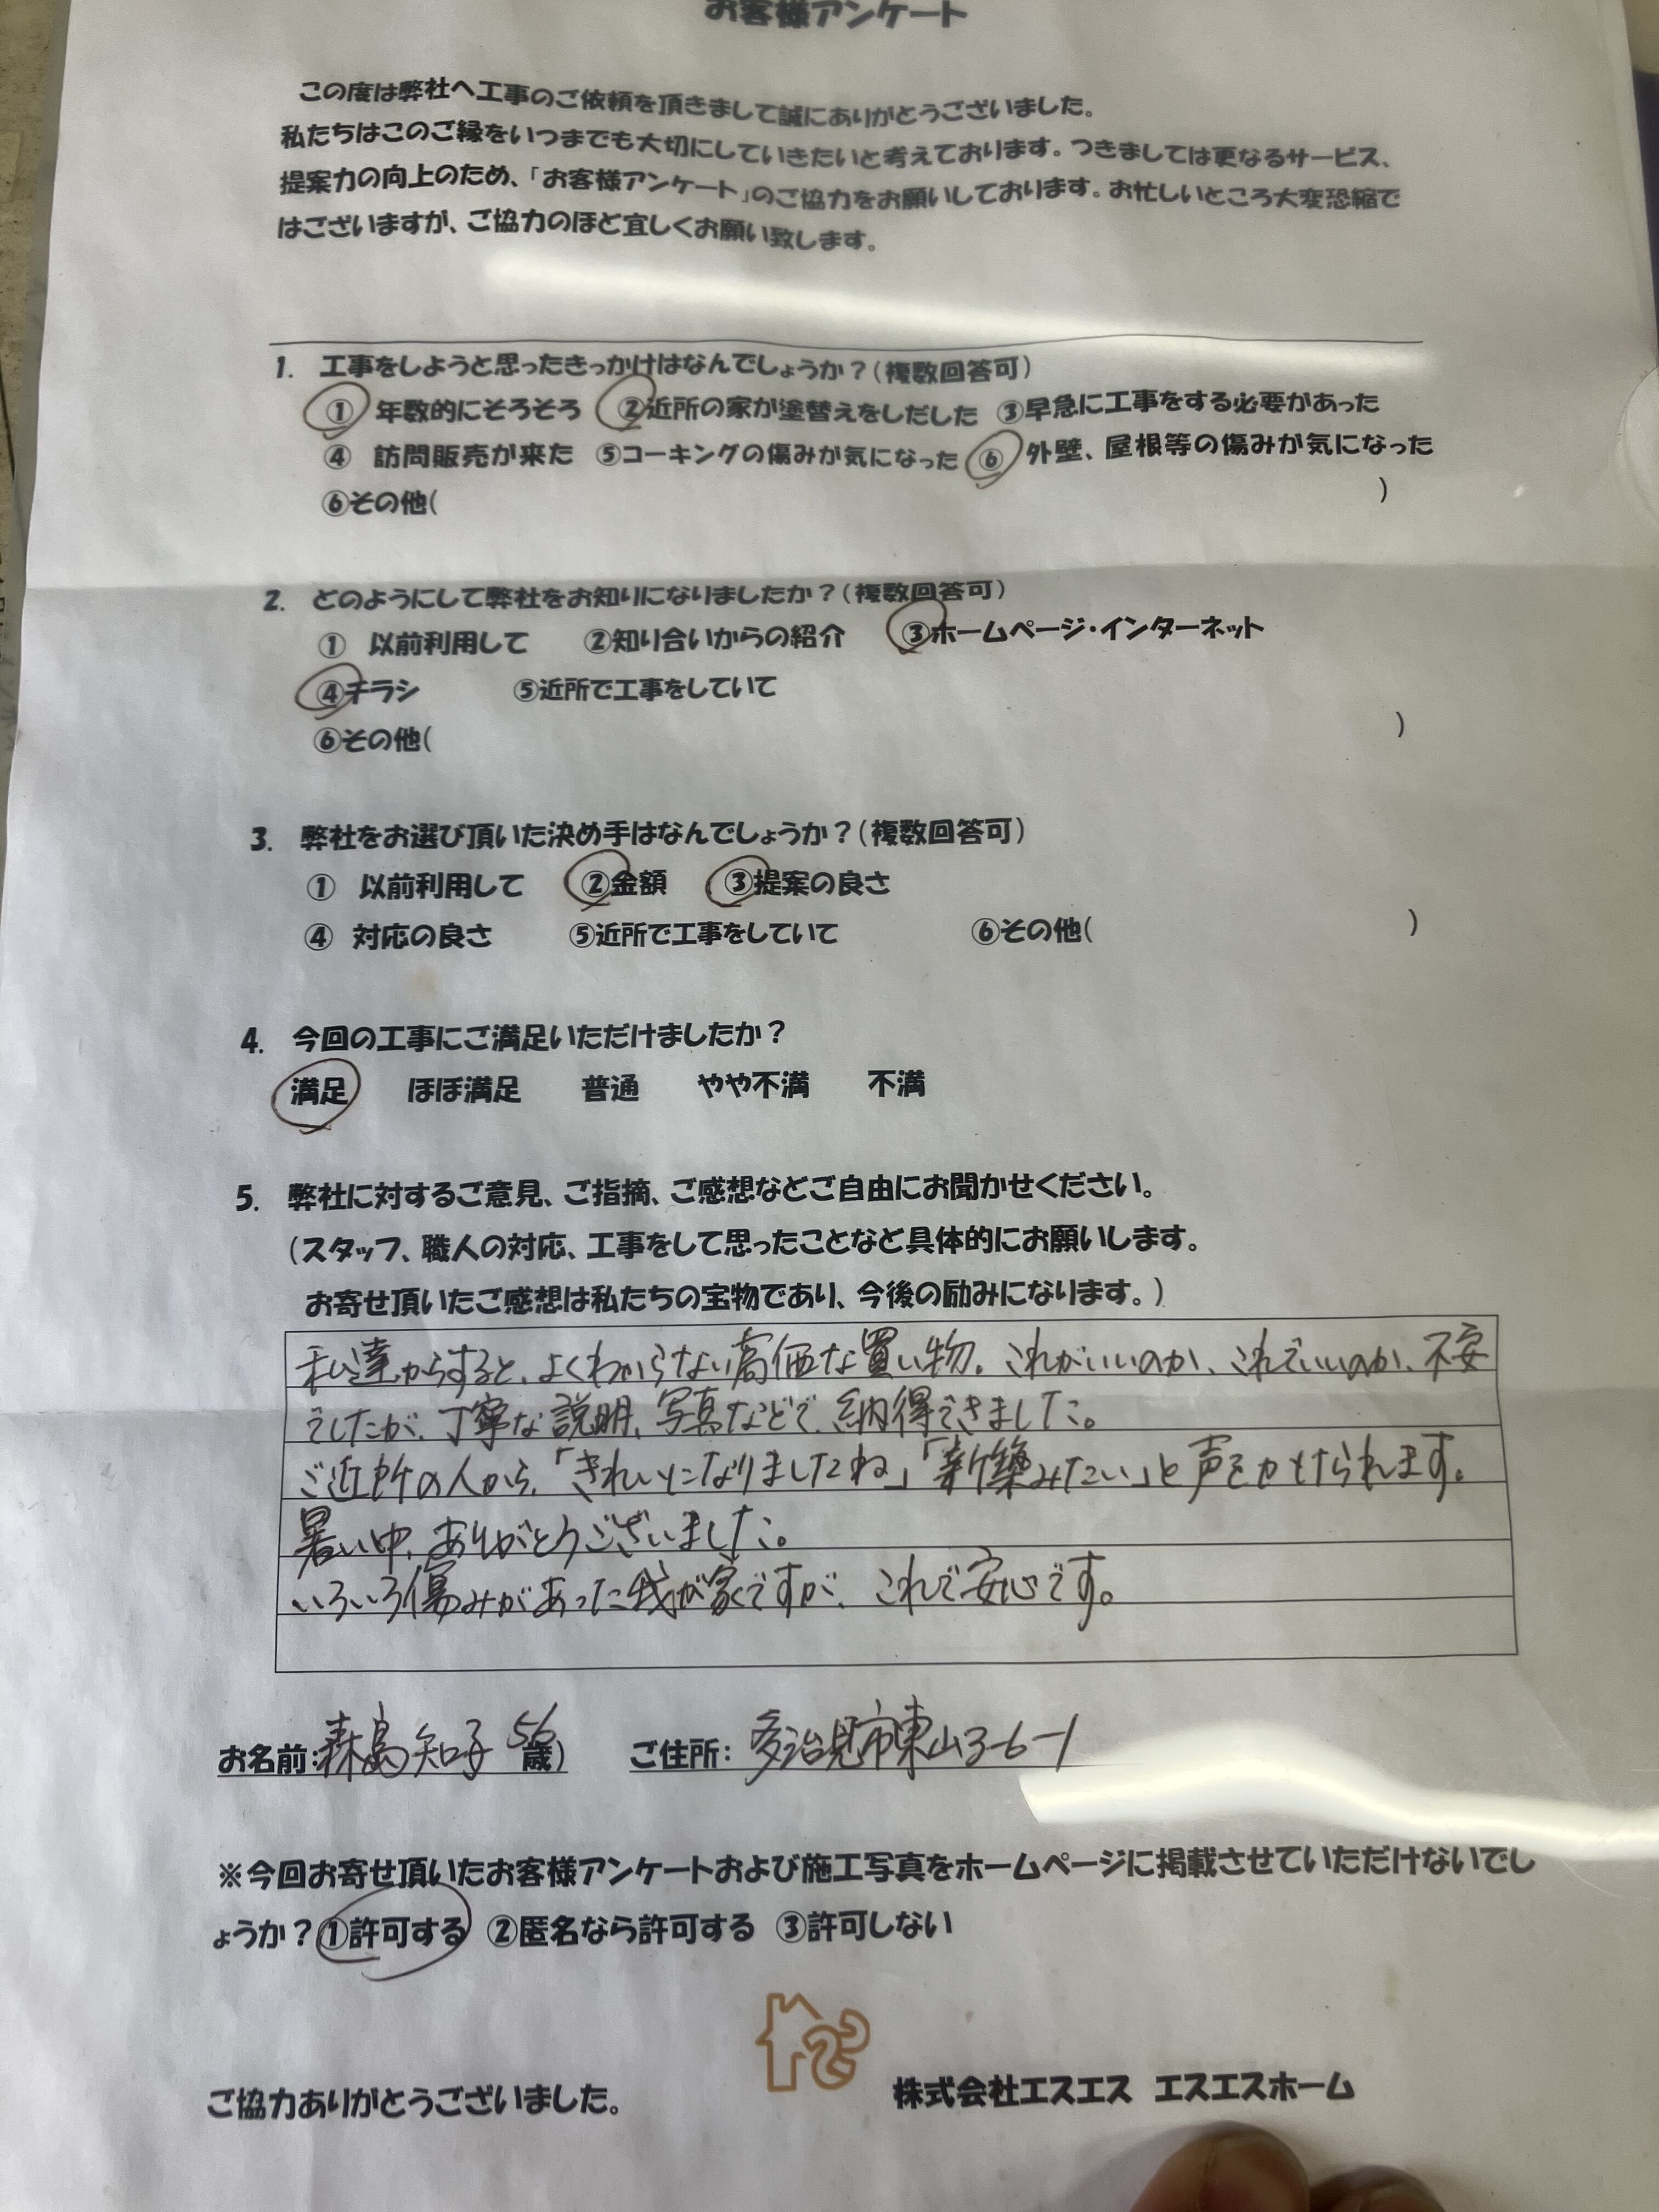 お客様アンケート
この度は弊社へ工事のご依頼を頂きまして誠にありがとうございました。
私たちはこのご縁をいつまでも大切にしていきたいと考えております。つきましては更なるサービス、
提案力の向上のため、「お客様アンケート」のご協力をお願いしております。お忙しいところ大変恐縮で
はございますが、ご協力のほど宜しくお願い致します。
1. 工事をしようと思ったきっかけはなんでしょうか？(複数回答可)
① 年数的にそろそろ ②近所の家が塗替えをしだした ③早急に工事をする必要があった
④ 訪問販売が来た ⑤コーキングの傷みが気になった ⑥ 外壁、屋根等の傷みが気になった
⑥その他( )
2. どのようにして弊社をお知りになりましたか？(複数回答可)
① 以前利用して ②知り合いからの紹介 ③ホームページ・インターネット
④チラシ ⑤近所で工事をしていて
⑥その他( )
3. 弊社をお選び頂いた決め手はなんでしょうか？(複数回答可)
① 以前利用して ②金額 ③提案の良さ
④ 対応の良さ ⑤近所で工事をしていて ⑥その他( )
4. 今回の工事にご満足いただけましたか？
満足 ほぼ満足 普通 やや不満 不満
5. 弊社に対するご意見、ご指摘、ご感想などご自由にお聞かせください。
(スタッフ、職人の対応、工事をして思ったことなど具体的にお願いします。
お寄せ頂いたご感想は私たちの宝物であり、今後の励みになります。)
私達からすると、よくわからない高価な買い物。これがいいのか、これでいいのか、不安
でしたが、丁寧な説明、写真などで、納得できました。
ご近所の人から、「きれいになりましたね」「新築みたい」と声をかけられます。
暑い中、ありがとうございました。
いろいろ傷みがあった我が家ですが、これで安心です。
お名前:森島知子 56歳) ご住所: 多治見市東山3-6-1
※今回お寄せ頂いたお客様アンケートおよび施工写真をホームページに掲載させていただけないでし
ょうか？①許可する ②匿名なら許可する ③許可しない
ご協力ありがとうございました。 株式会社エスエス エスエスホーム